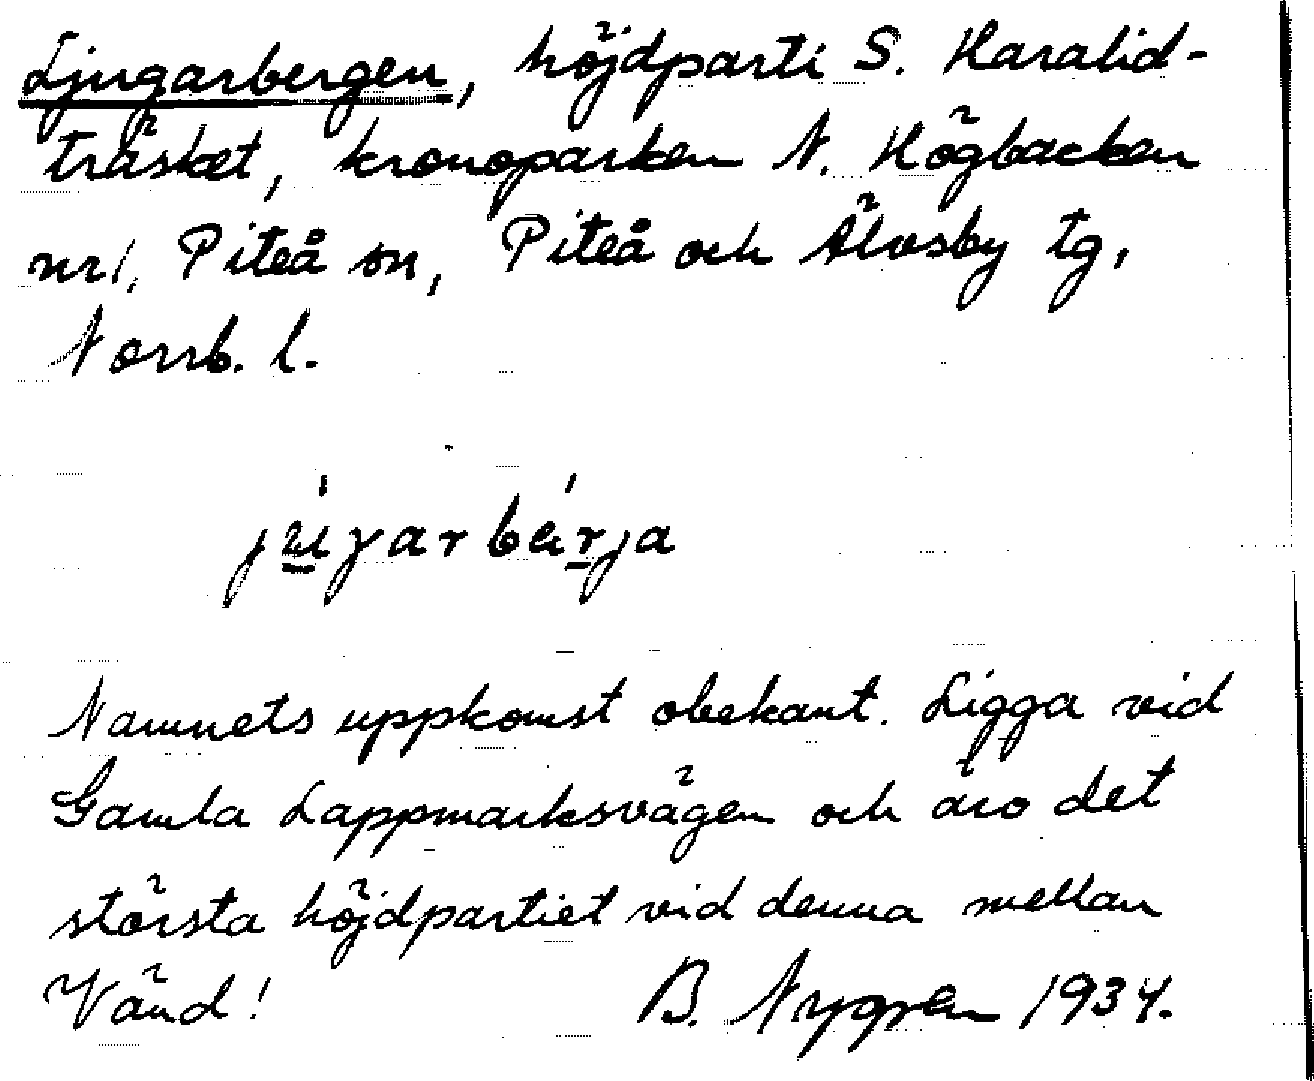 Ljugarbergen, höjdparti S. Haralid-
träsket, kronoparken N. Högbacken
nr 1, Piteå sn, Piteå och Älvsby tg,
Norrb. l.
Namnets uppkomst obekant. Ligga vid
Gamla Lappmarksvägen och äro det
största höjdpartiet vid denna mellan
Vänd! B. Nygren 1934.